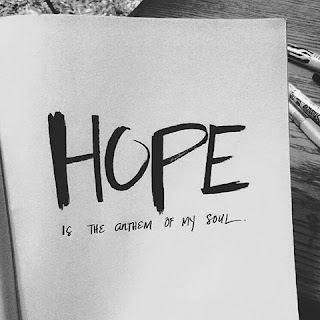 HOPE
IS THE ANTHEM OF MY SOUL.